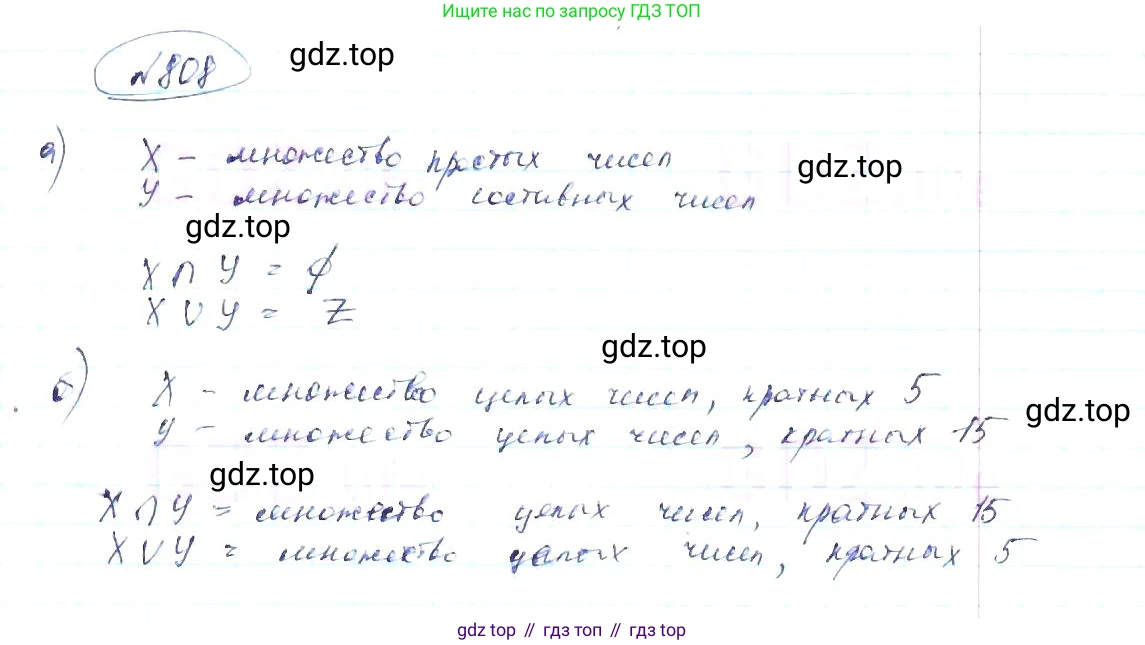 Ищите нас по запросу ГДЗ ТОП
№808
gdz.top
а) X – множество простых чисел
gdz.top
Y – множество составных чисел
gdz.top
X ∩ Y = ∅
X ∪ Y = Z
gdz.top
б) X – множество целых чисел, кратных 5
gdz.top
Y – множество целых чисел, кратных 15
gdz.top
X ∩ Y = множество целых чисел, кратных 15
X ∪ Y = множество целых чисел, кратных 5
gdz top // гдз топ // gdz.top